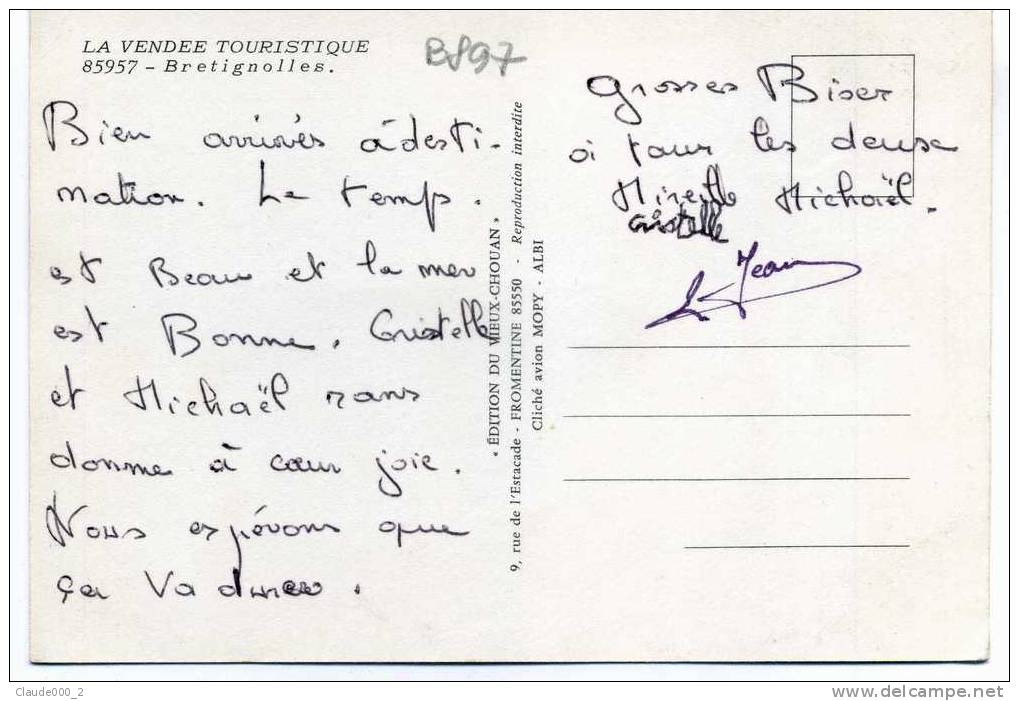 LA VENDEE TOURISTIQUE
85957 - Bretignolles.
B897
Bien arrivés à desti-
nation. Le temps.
est Beau et la mer
est Bonne. Cristelle
et Michaël
donne à cœur joie.
Nous espérons que
ça Va durer.
« ÉDITION DU VIEUX-CHOUAN »
9, rue de l'Estacade - FROMENTINE 85550 - Reproduction interdite
Cliché avion MOPY - ALBI
Grosses Bises
à tous les deuse
Mireille Michaël.
Cristelle
Jean
Claude000_2
www.delcampe.net